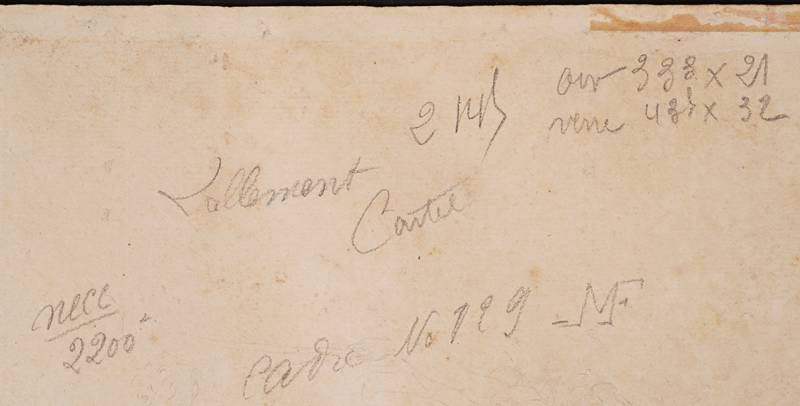 ouv 333 x 21
verre 43 x 32
Lallement
Cartel
nece
2200
Cadre No 129 - NF